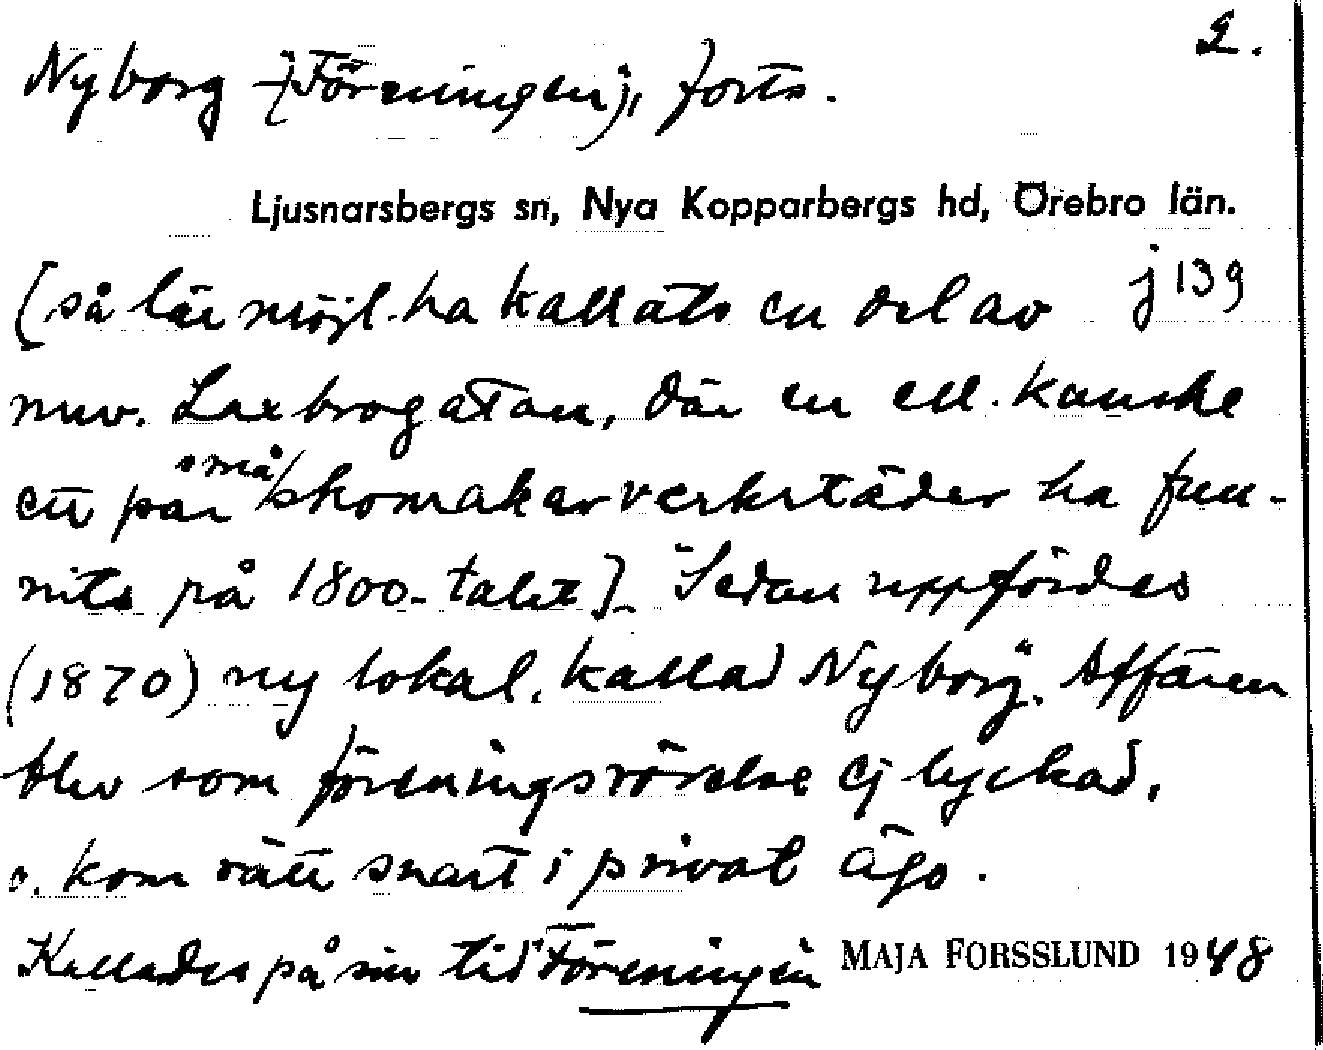 2.
Nyborg (Föreningen), forts.
Ljusnarsbergs sn, Nya Kopparbergs hd, Örebro län.
[så lär möjl. ha kallats en del av j 139
nuv. Laxbrogatan, där en ell. kanske
ett par små skomakarverkstäder ha fun-
nits på 1800-talet]. Sedan uppfördes
(1870) ny lokal, kallad Nyborg. Affären
blev som föreningsrörelse ej lyckad,
o. kom rätt snart i privat ägo.
Kallades på sin tid Föreningen MAJA FORSSLUND 1948